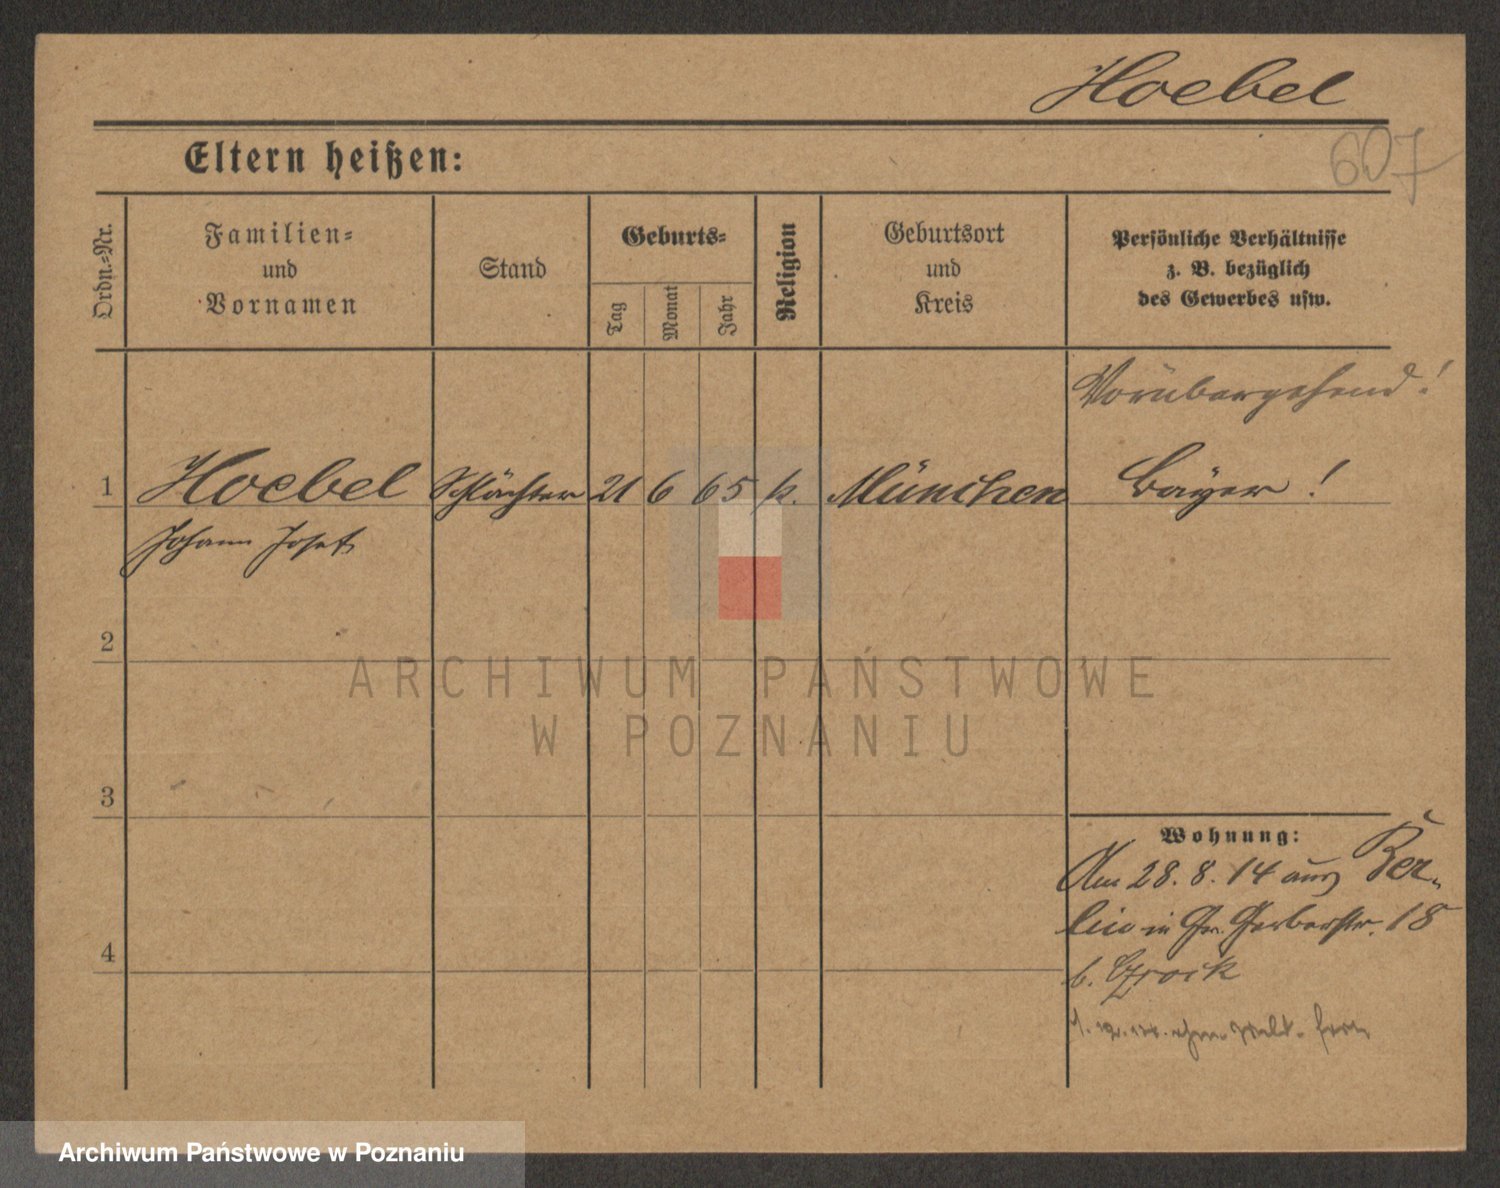 Hoebel
607
Eltern heißen:
Ordn.=Nr.
Familien=
und
Vornamen
Stand
Geburts=
Tag
Monat
Jahr
Religion
Geburtsort
und
Kreis
Persönliche Verhältnisse
z. B. bezüglich
des Gewerbes usw.
Vorübergehend!
1 Hoebel Schlächter 21 6 65 k. München Bayer!
Johann Josef
2
ARCHIWUM PAŃSTWOWE
W POZNANIU
3
Wohnung:
Am 28.8.14 aus Ber-
lin in Gr. Gerberstr. 18
4
b.
ohne
Archiwum Państwowe w Poznaniu